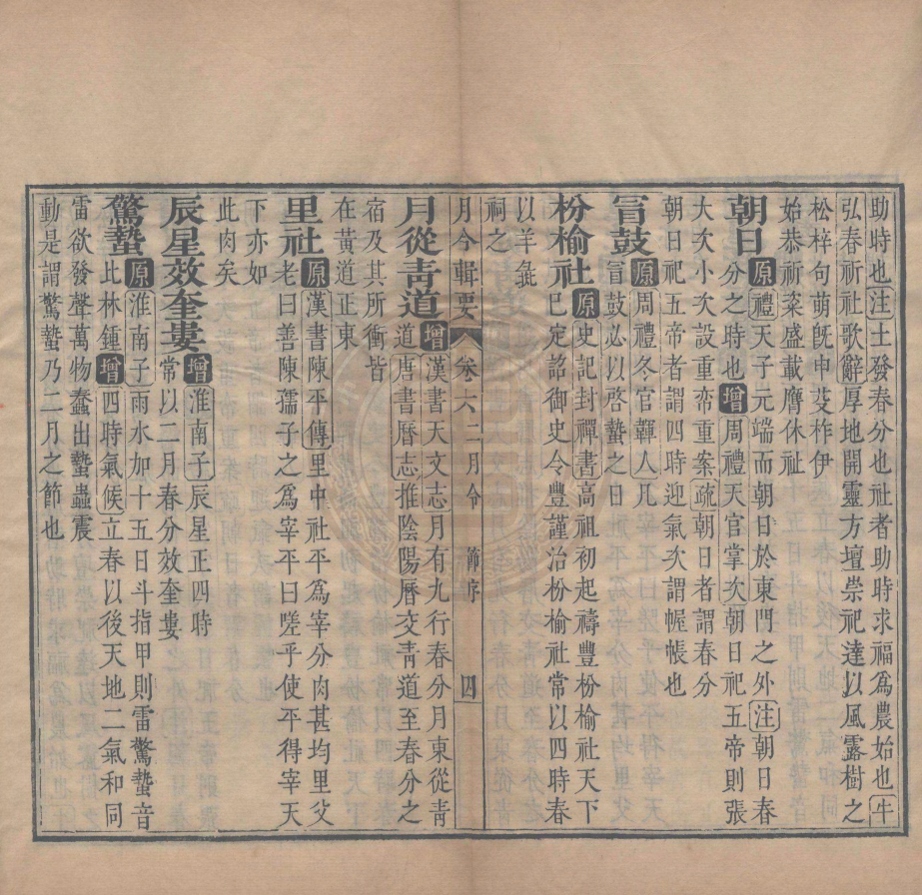 助時也注土發春分也社者助時求福爲農始也牛
弘春祈社歌辭厚地開靈方壇崇祀達以風露樹之
松梓句萌旣申芟柞伊
始恭祈粢盛載膺休祉
朝日原禮天子元端而朝日於東門之外注朝日春
分之時也增周禮天官掌次朝日祀五帝則張
大次小次設重帟重案疏朝日者謂春分
朝日祀五帝者謂四時迎氣次謂幄帳也
冐鼓原周禮冬官韗人凡
冐鼓必以啓蟄之日
枌榆社原史記封禪書高祖初起禱豐枌榆社天下
已定詔御史令豐謹治枌榆社常以四時春
以羊彘
祠之
月令輯要 卷六二月令 節序 四
月從靑道增漢書天文志月有九行春分月東從靑
道唐書曆志推陰陽曆交靑道至春分之
宿及其所衝皆
在黃道正東
里社原漢書陳平傳里中社平爲宰分肉甚均里父
老曰善陳孺子之爲宰平曰嗟乎使平得宰天
下亦如
此肉矣
辰星效奎婁增淮南子辰星正四時
常以二月春分效奎婁
驚蟄原淮南子雨水加十五日斗指甲則雷驚蟄音
比林鍾增四時氣候立春以後天地二氣和同
雷欲發聲萬物蠢出蟄蟲震
動是謂驚蟄乃二月之節也